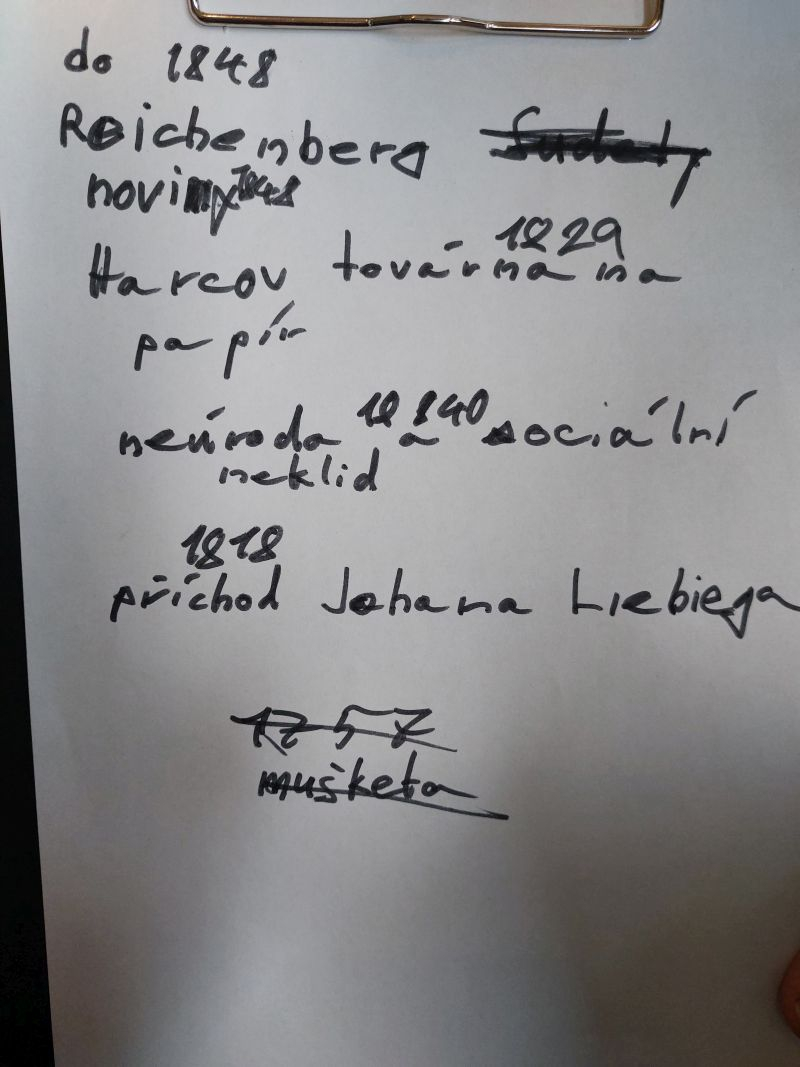 do 1848
Reichenberg Sudety
noviny 1848
Harcov továrna na
1829
papír
neúroda a sociální
1840
neklid
1818
příchod Johana Liebiega
1757
mušketa